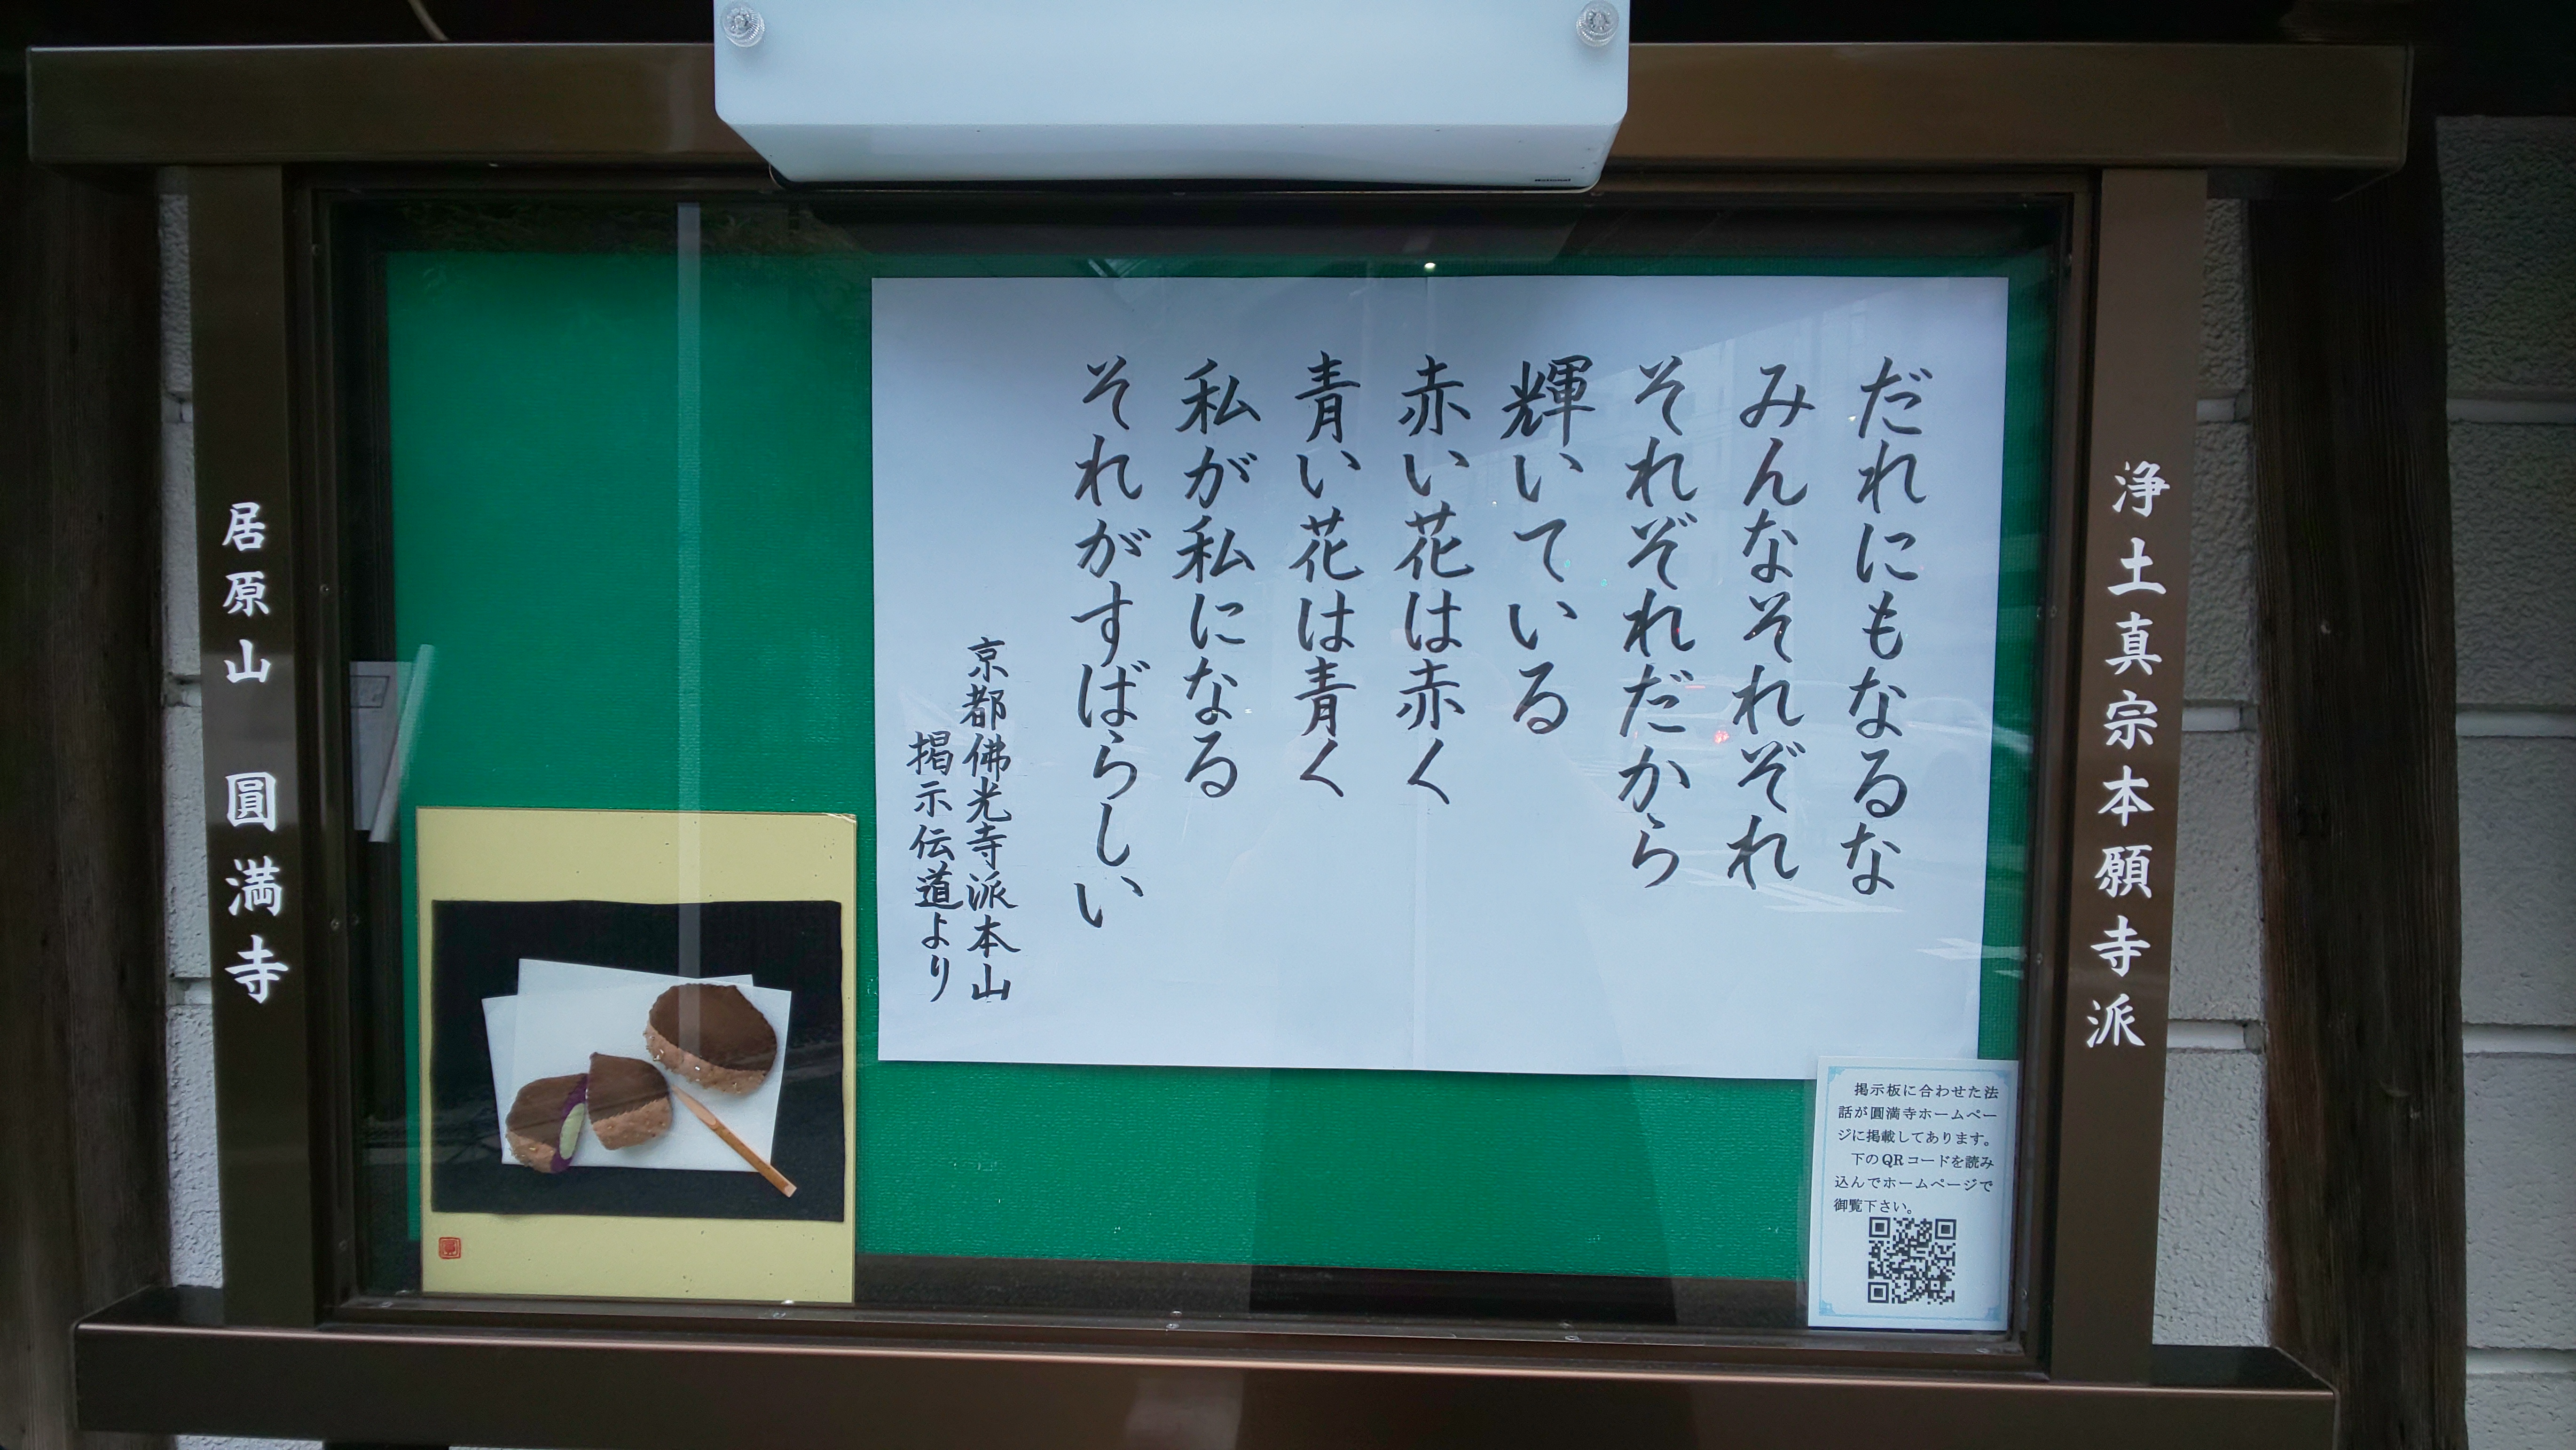 浄土真宗本願寺派
だれにもなるな
みんなそれぞれ
それぞれだから
輝いている
赤い花は赤く
青い花は青く
私が私になる
それがすばらしい
京都佛光寺派本山
掲示伝道より
居原山 圓満寺
掲示板に合わせた法
話が圓満寺ホームペー
ジに掲載してあります。
下のQRコードを読み
込んでホームページで
御覧下さい。
National